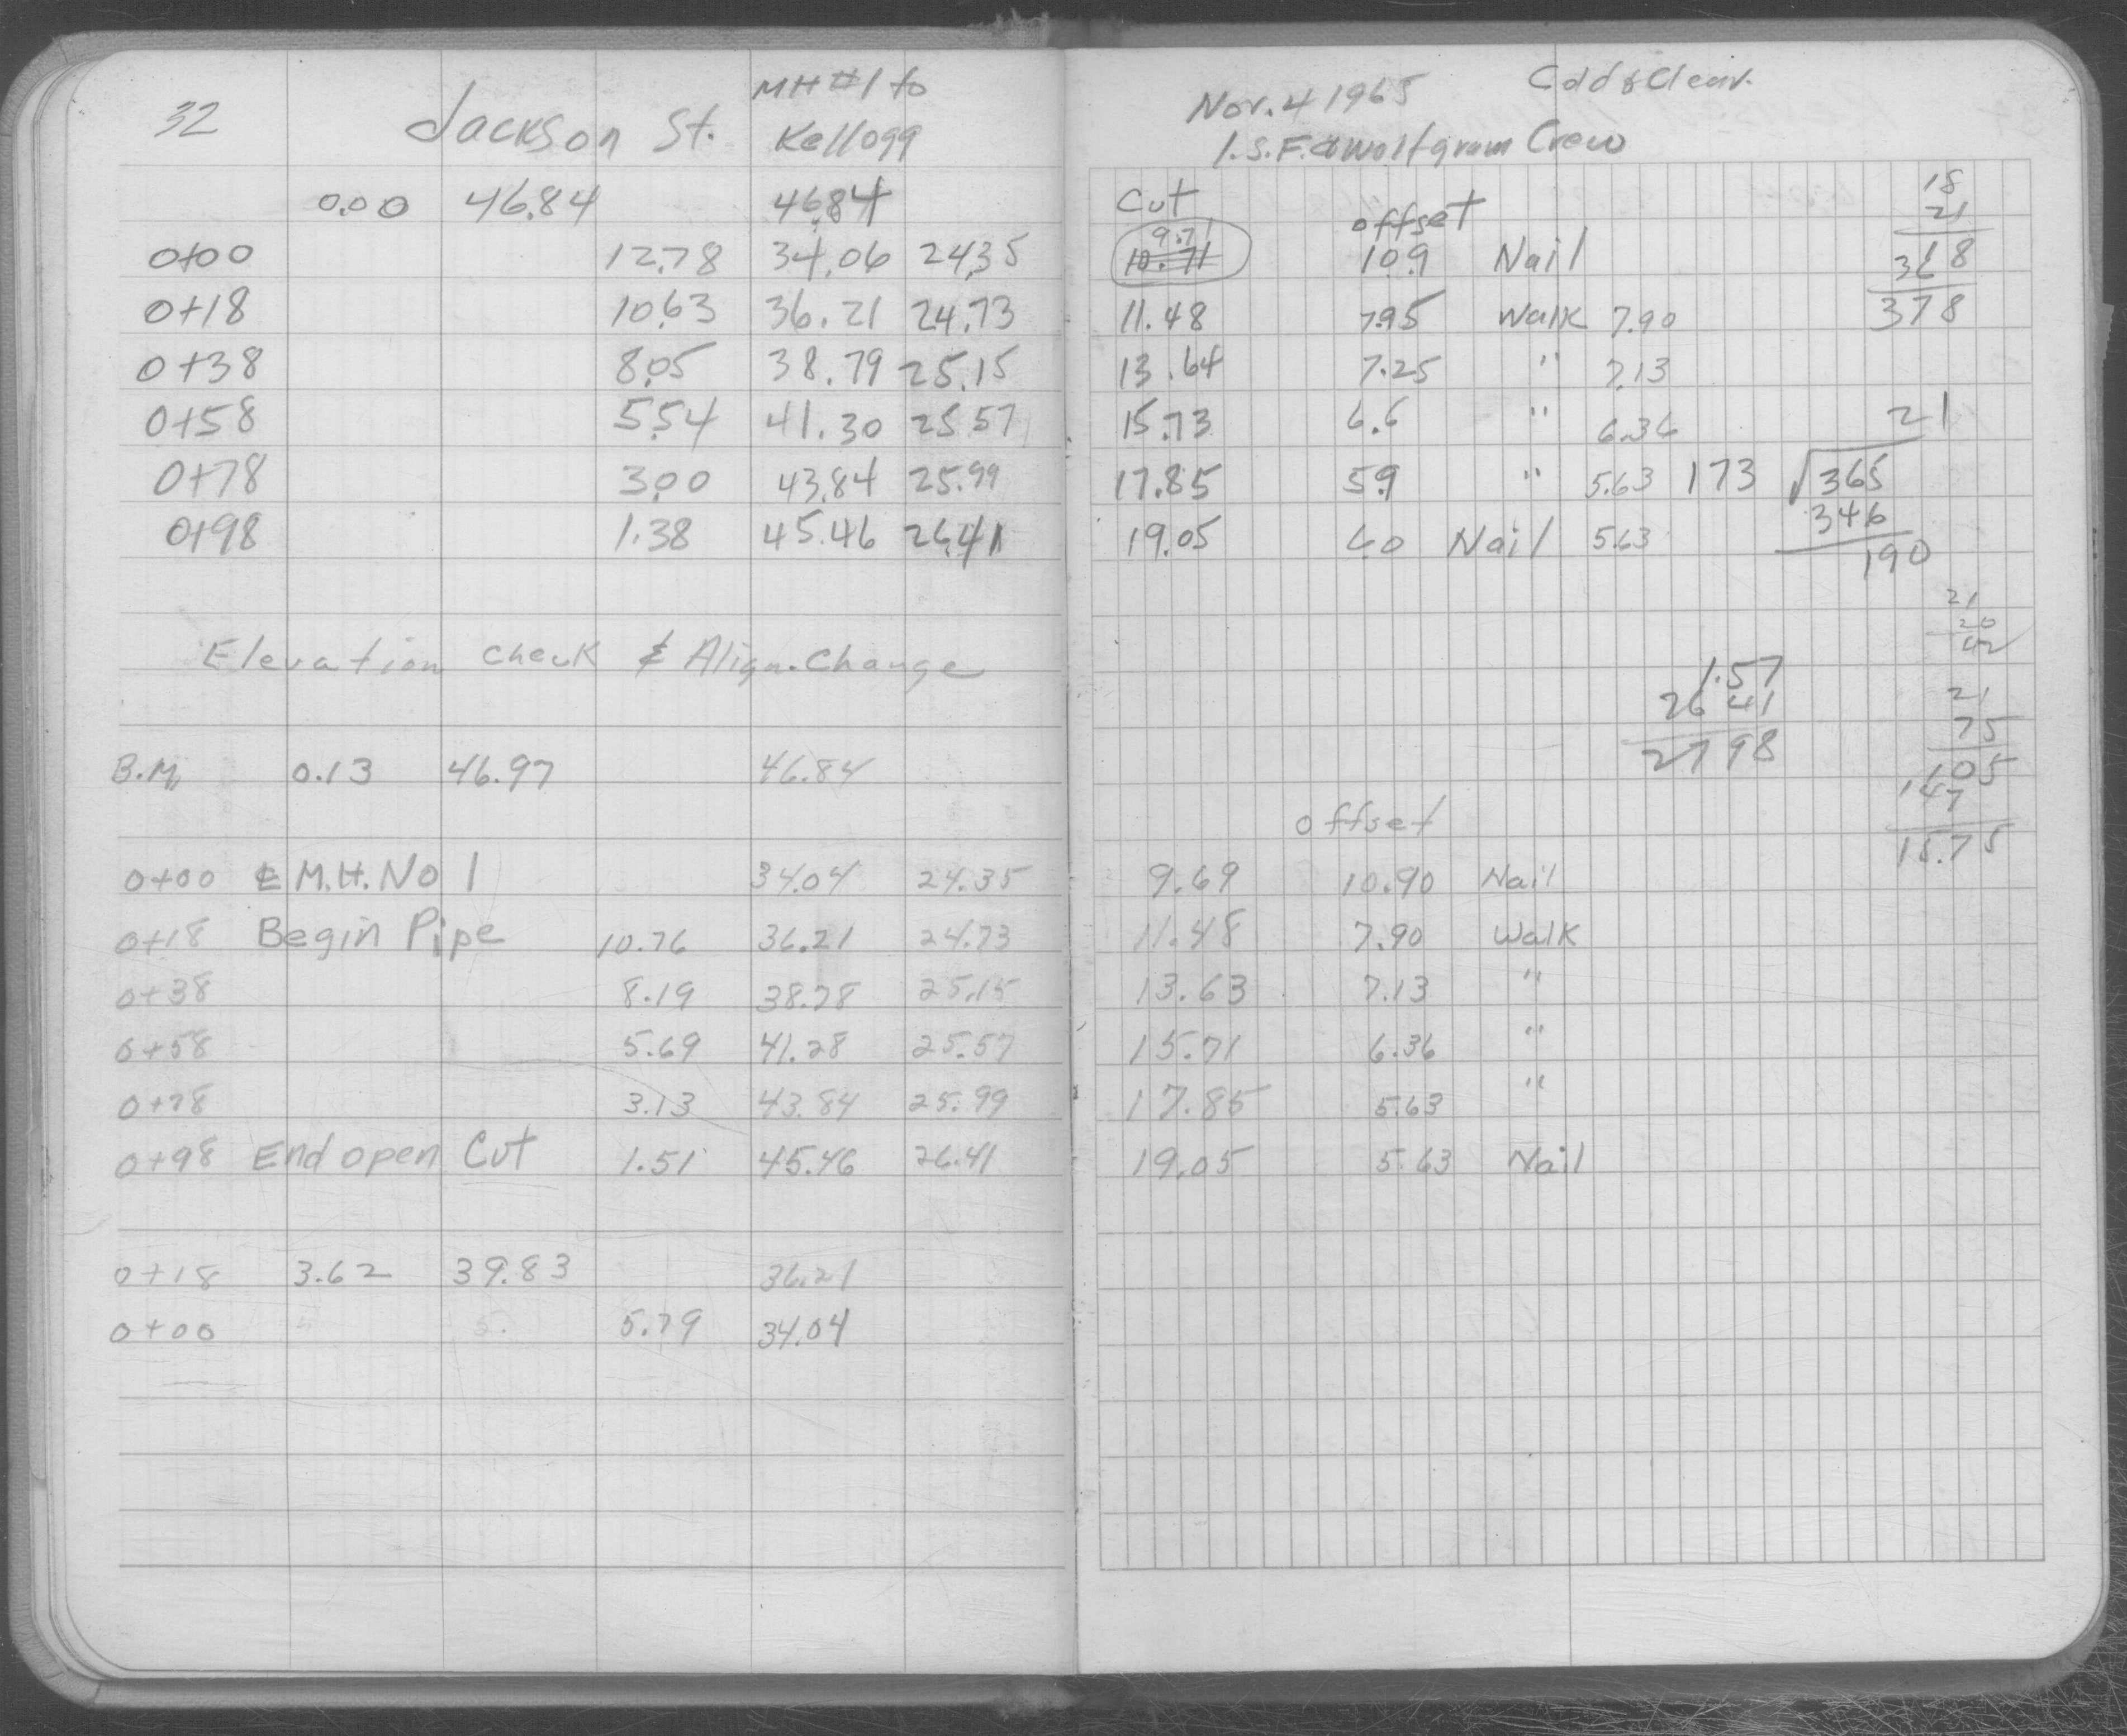 32 Jackson St. MH #1 to
Kellogg
0.00 46.84 46.84
0+00 12.78 34.06 24.35
0+18 10.63 36.21 24.73
0+38 8.05 38.79 25.15
0+58 5.54 41.30 25.57
0+78 3.00 43.84 25.99
0+98 1.38 45.46 26.41
Elevation Check & Align. Change
B.M. 0.13 46.97 46.84
0+00 ℄ M.H. No 1 34.04 24.35
0+18 Begin Pipe 10.76 36.21 24.73
0+38 8.19 38.78 25.15
0+58 5.69 41.28 25.57
0+78 3.13 43.84 25.99
0+98 End open Cut 1.51 45.46 26.41
0+18 3.62 39.83 36.21
0+00 5.79 34.04
Nov. 4 1965 Cold & Clear.
I.S.F. & Wolfgram Crew
Cut offset
9.71
10.71 10.9 Nail
11.48 7.95 Walk 7.90
13.64 7.25 " 7.13
15.73 6.6 " 6.36
17.85 5.9 " 5.63
19.05 6.0 Nail 5.63
18
21
368
378
21
173 √365
346
190
21
20
42
1.57
26 41
27 98
21
75
105
147
15.75
offset
9.69 10.90 Nail
11.48 7.90 Walk
13.63 7.13 "
15.71 6.36 "
17.85 5.63 "
19.05 5.63 Nail